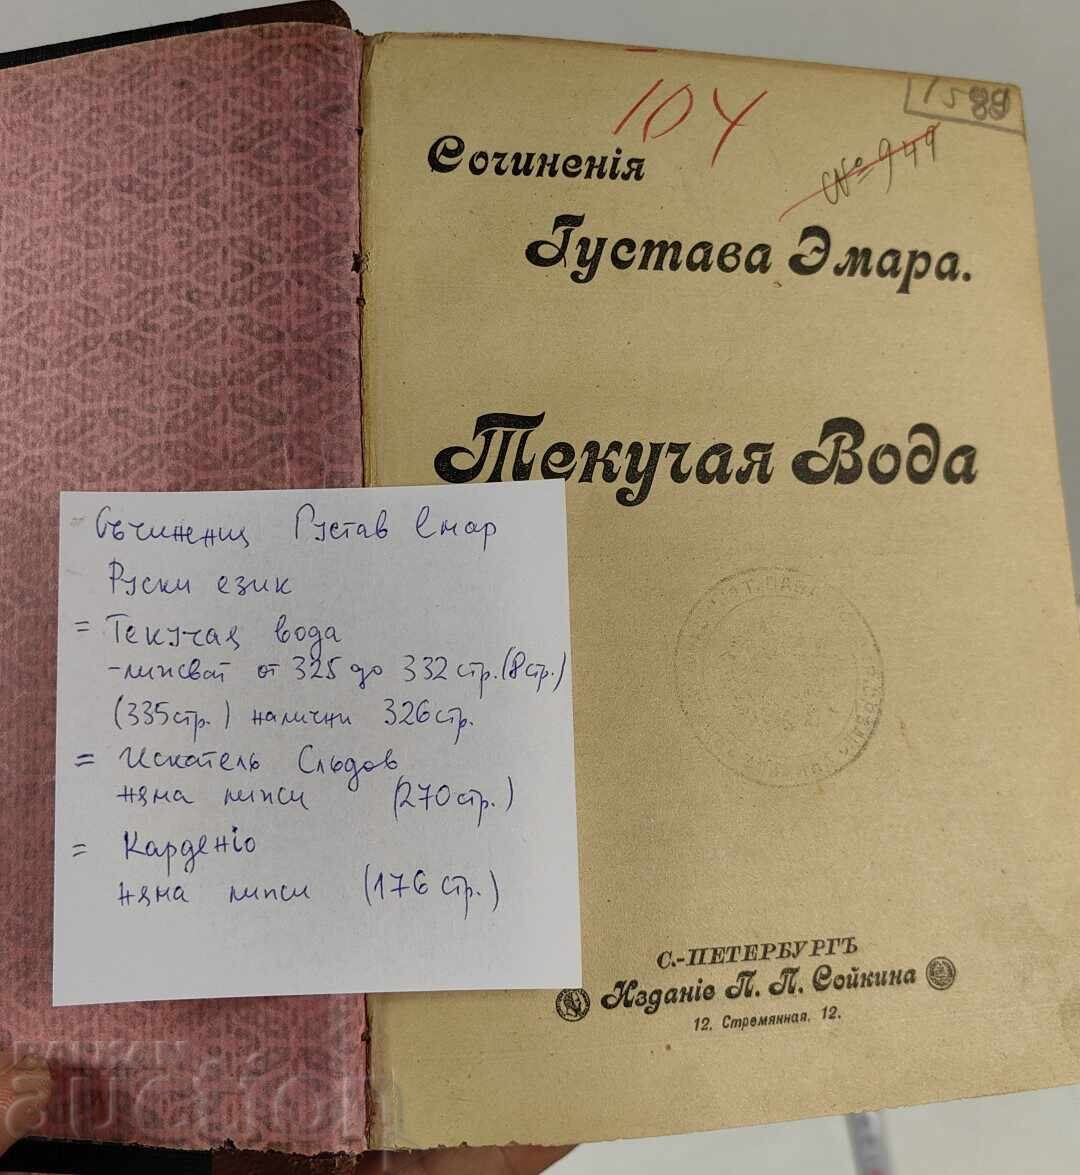 104
1588
№ 949
Сочиненія
Густава Эмара.
Текучая Вода
С.-ПЕТЕРБУРГЪ
Изданіе П. П. Сойкина
12. Стремянная. 12.
Съчинения Густав Емар
Руски език
= Текучая вода
- липсват от 325 до 332 стр. (8 стр.)
(335 стр.) налични 326 стр.
= Искатель Следов
няма липси (270 стр.)
= Карденіо
няма липси (176 стр.)
БАЛКАН
auction